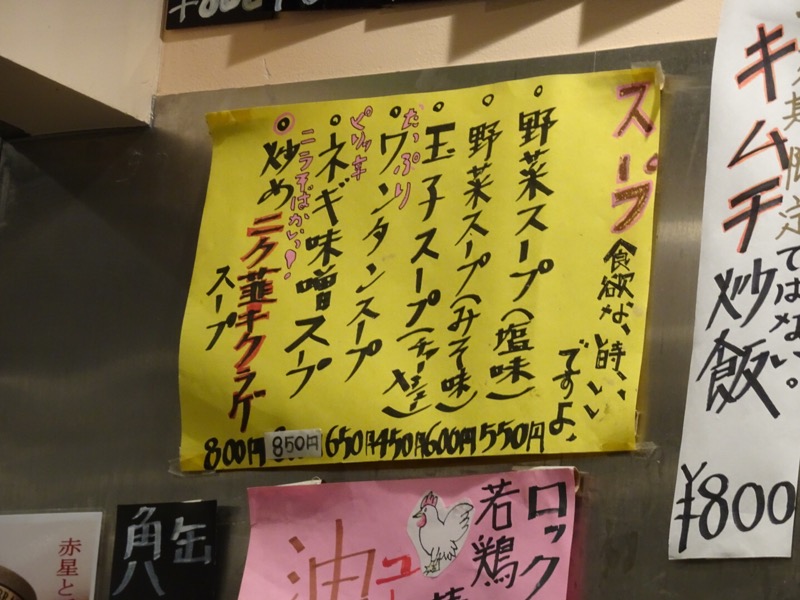 スープ
食欲ない時いい
ですよ!
野菜スープ(塩味)
550円
野菜スープ(みそ味)
600円
玉子スープ(チャーシュー)
450円
たっぷり
ワンタンスープ
650円
ピリッ辛
ネギ味噌スープ
850円
ニラそばかいっ!
炒め ニク韮キクラゲ
スープ
800円
ではない。
キムチ炒飯
¥800
ロック
若鶏
油
缶
角ハ
赤星と